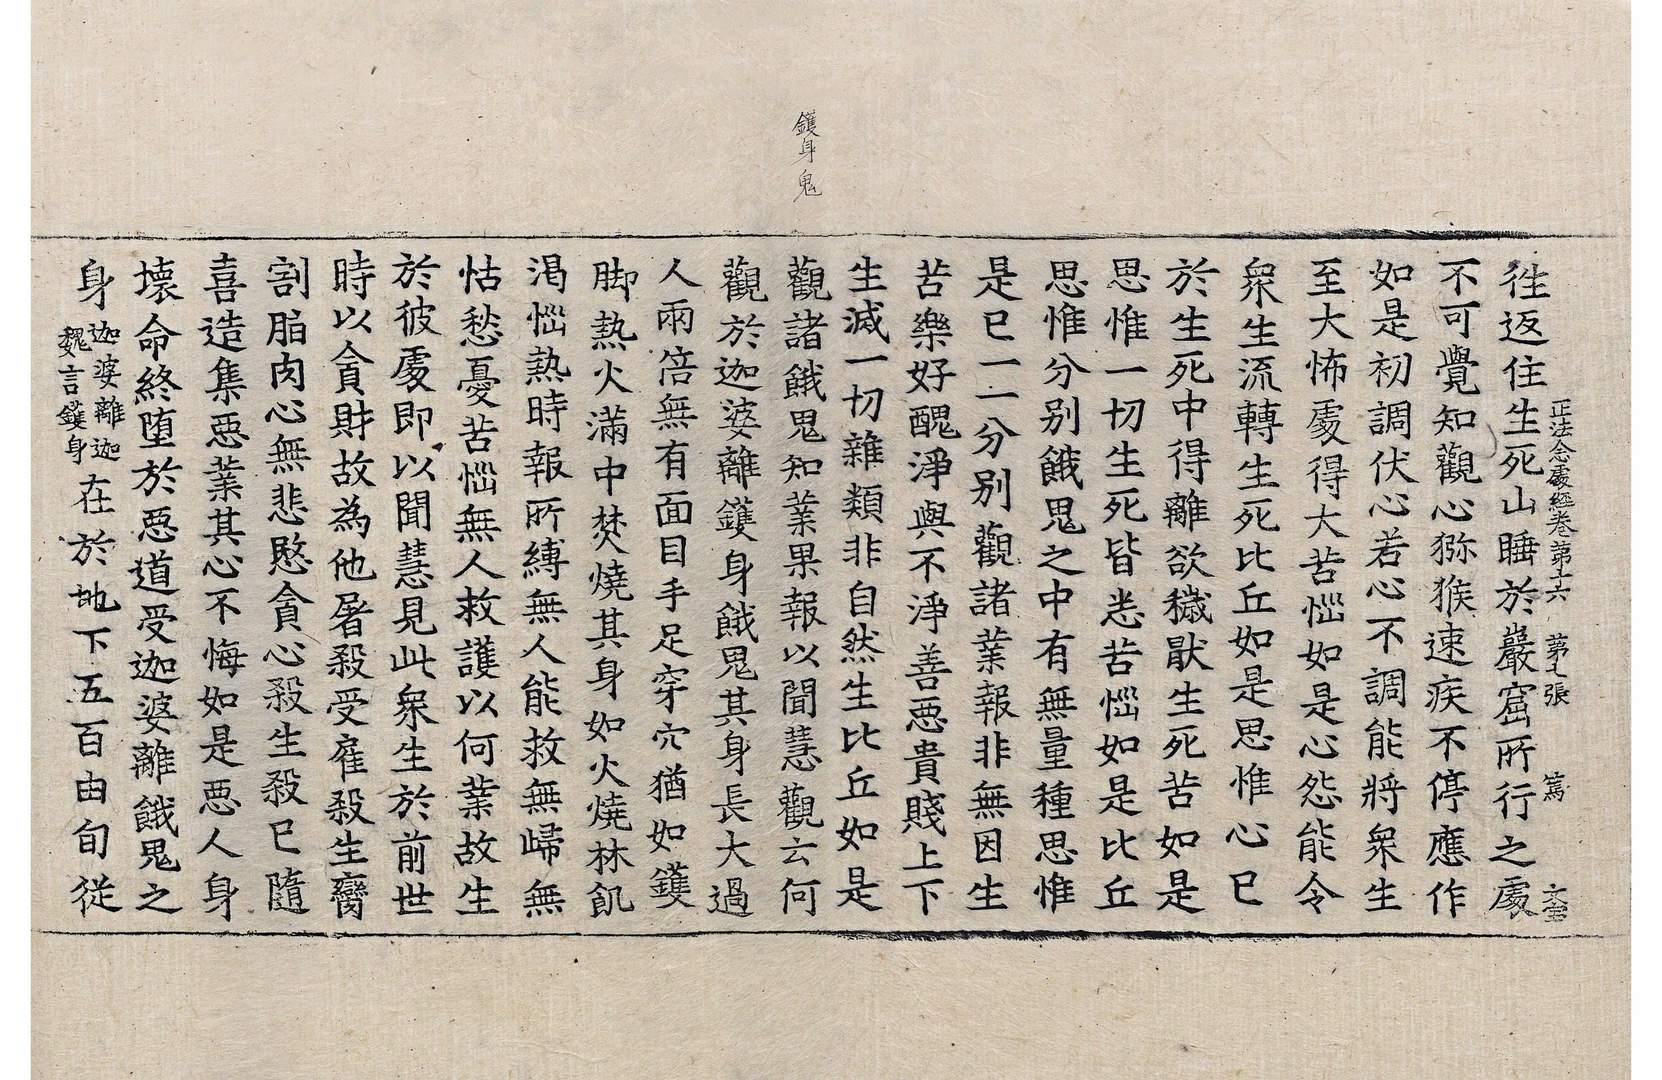 鑊身鬼
正法念處經卷第十六 第七張 篤
徃返住生死山睡於巖窟所行之處
不可覺知觀心猕猴速疾不停應作
如是初調伏心若心不調能將衆生
至大怖處得大苦惱如是心怨能令
衆生流轉生死比丘如是思惟心已
於生死中得離欲穢猒生死苦如是
思惟一切生死皆悉苦惱如是比丘
思惟分别餓鬼之中有無量種思惟
是已一一分别觀諸業報非無因生
苦樂好醜淨與不淨善惡貴賤上下
生滅一切雜類非自然生比丘如是
觀諸餓鬼知業果報以聞慧觀云何
觀於迦婆離鑊身餓鬼其身長大過
人兩倍無有面目手足穿穴猶如鑊
脚熱火滿中焚燒其身如火燒林飢
渴惱熱時報所縛無人能救無歸無
怙愁憂苦惱無人救護以何業故生
於彼處即以聞慧見此衆生於前世
時以貪財故為他屠殺受雇殺生臠
割脂肉心無悲愍貪心殺生殺已隨
喜造集惡業其心不悔如是惡人身
壞命終墮於惡道受迦婆離餓鬼之
身迦婆離迦魏言鑊身在於地下五百由旬従